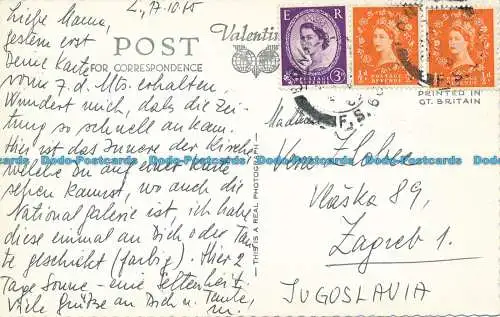 L., 17.10.65
Liebe Mama,
gestern erst
Deine Karte
vom 7. d. Mts. erhalten.
Wundert mich, daß die Zei-
tung so schnell ankam.
Hier ist das Innere der Kirche,
welche Du auf einer Karte
sehen kannst, wo auch die
National galerie ist, ich habe
diese einmal an Dich oder Tan-
te geschickt (farbig). Hier 2
Tage Sonne - eine Seltenheit,
Viele Grüße an Dich u. Tante,
POST
FOR CORRESPONDENCE
Valentine
E R
POSTAGE REVENUE
3D
PRINTED IN
GT. BRITAIN
THIS IS A REAL PHOTOGRAPH
F.S.
Vera
Vlaška 89,
Zagreb 1.
JUGOSLAVIA
Dodo-Postcards Dodo-Postcards Dodo-Postcards Dodo-Postcards